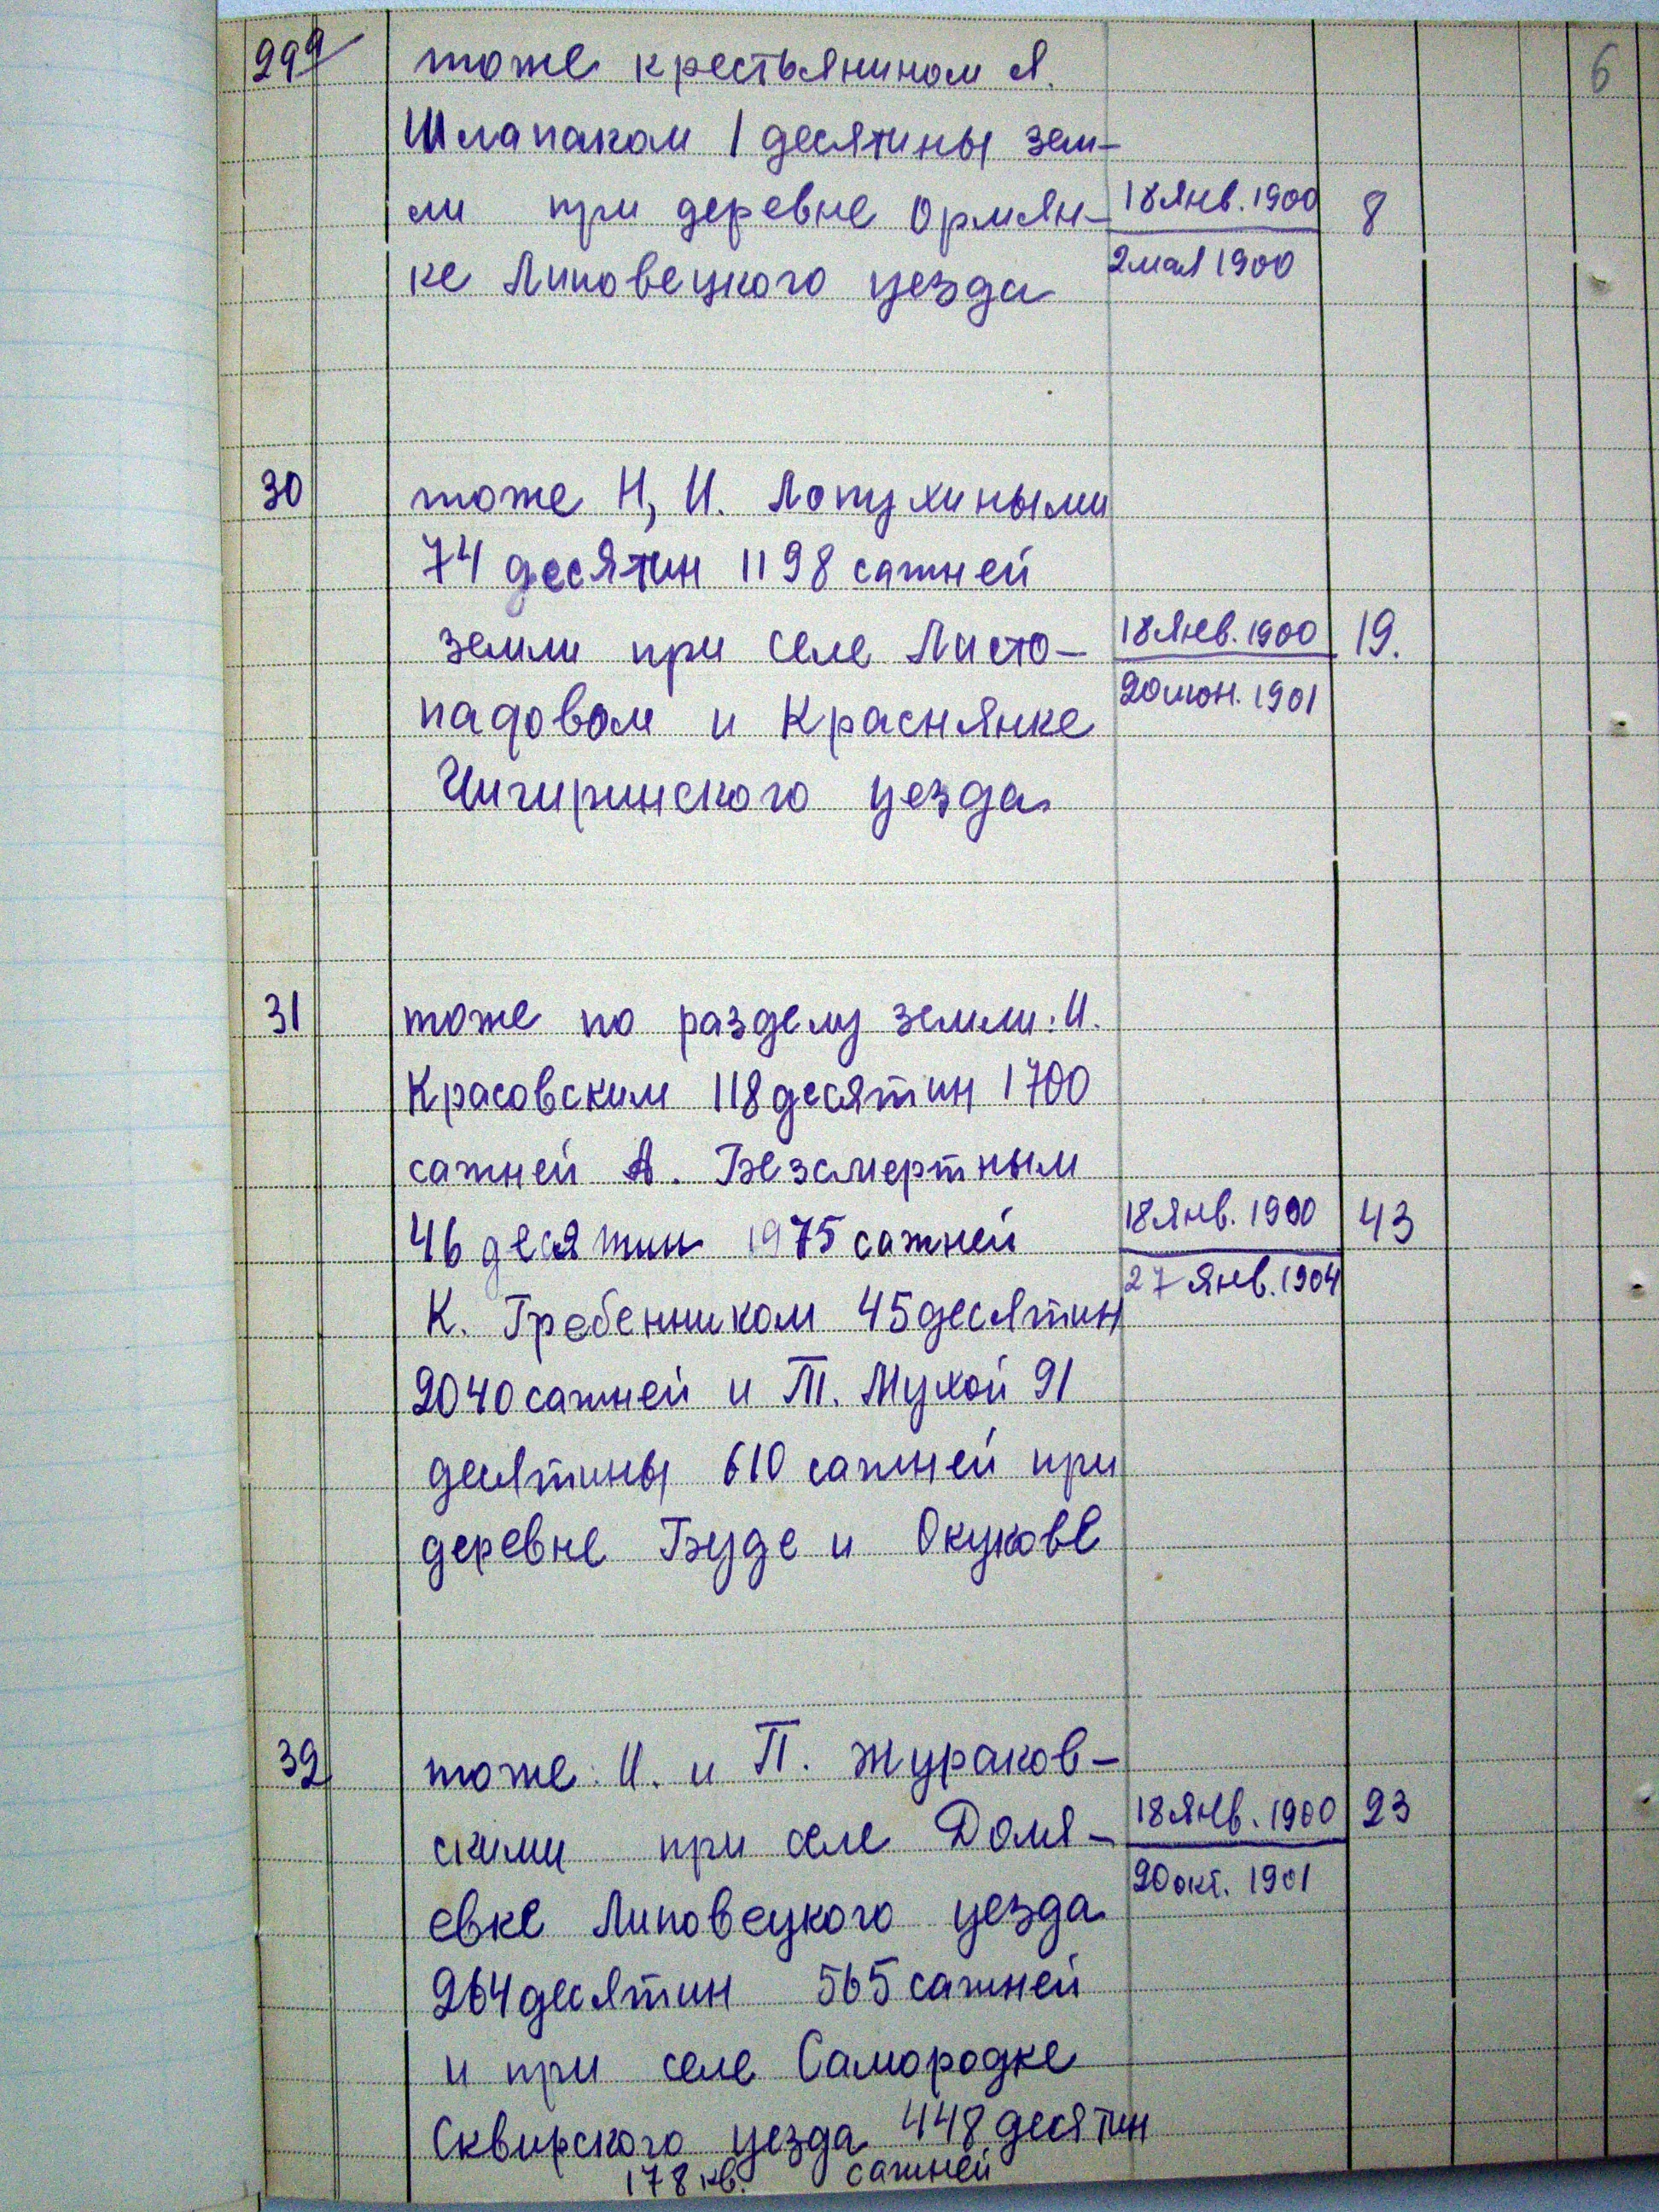 6
299 тоже крестьянином Я.
Шлапаком 1 десятины зем-
ли при деревне Ормян- 18 Янв. 1900 8
ке Липовецкого уезда 2 мая 1900
30 тоже Н, И. Лопухиными
74 десятин 1198 сажней
земли при селе Листо- 18 Янв. 1900 19.
падовом и Краснянке 20 июн. 1901
Чигиринского уезда
31 тоже по разделу земли: И.
Красовским 118 десятин 1700
сажней А. Безсмертным
46 десятин 1975 сажней 18 Янв. 1900 43
К. Гребенником 45 десятин 27 Янв. 1904
2040 сажней и Т. Мухой 91
десятины 610 сажней при
деревне Буде и Окукове
32 тоже: И. и П. Жураков-
скими при селе Домя- 18 Янв. 1900 23
евке Липовецкого уезда 20 окт. 1901
264 десятин 565 сажней
и при селе Самородке
Сквирского уезда 448 десятин
178 кв. сажней